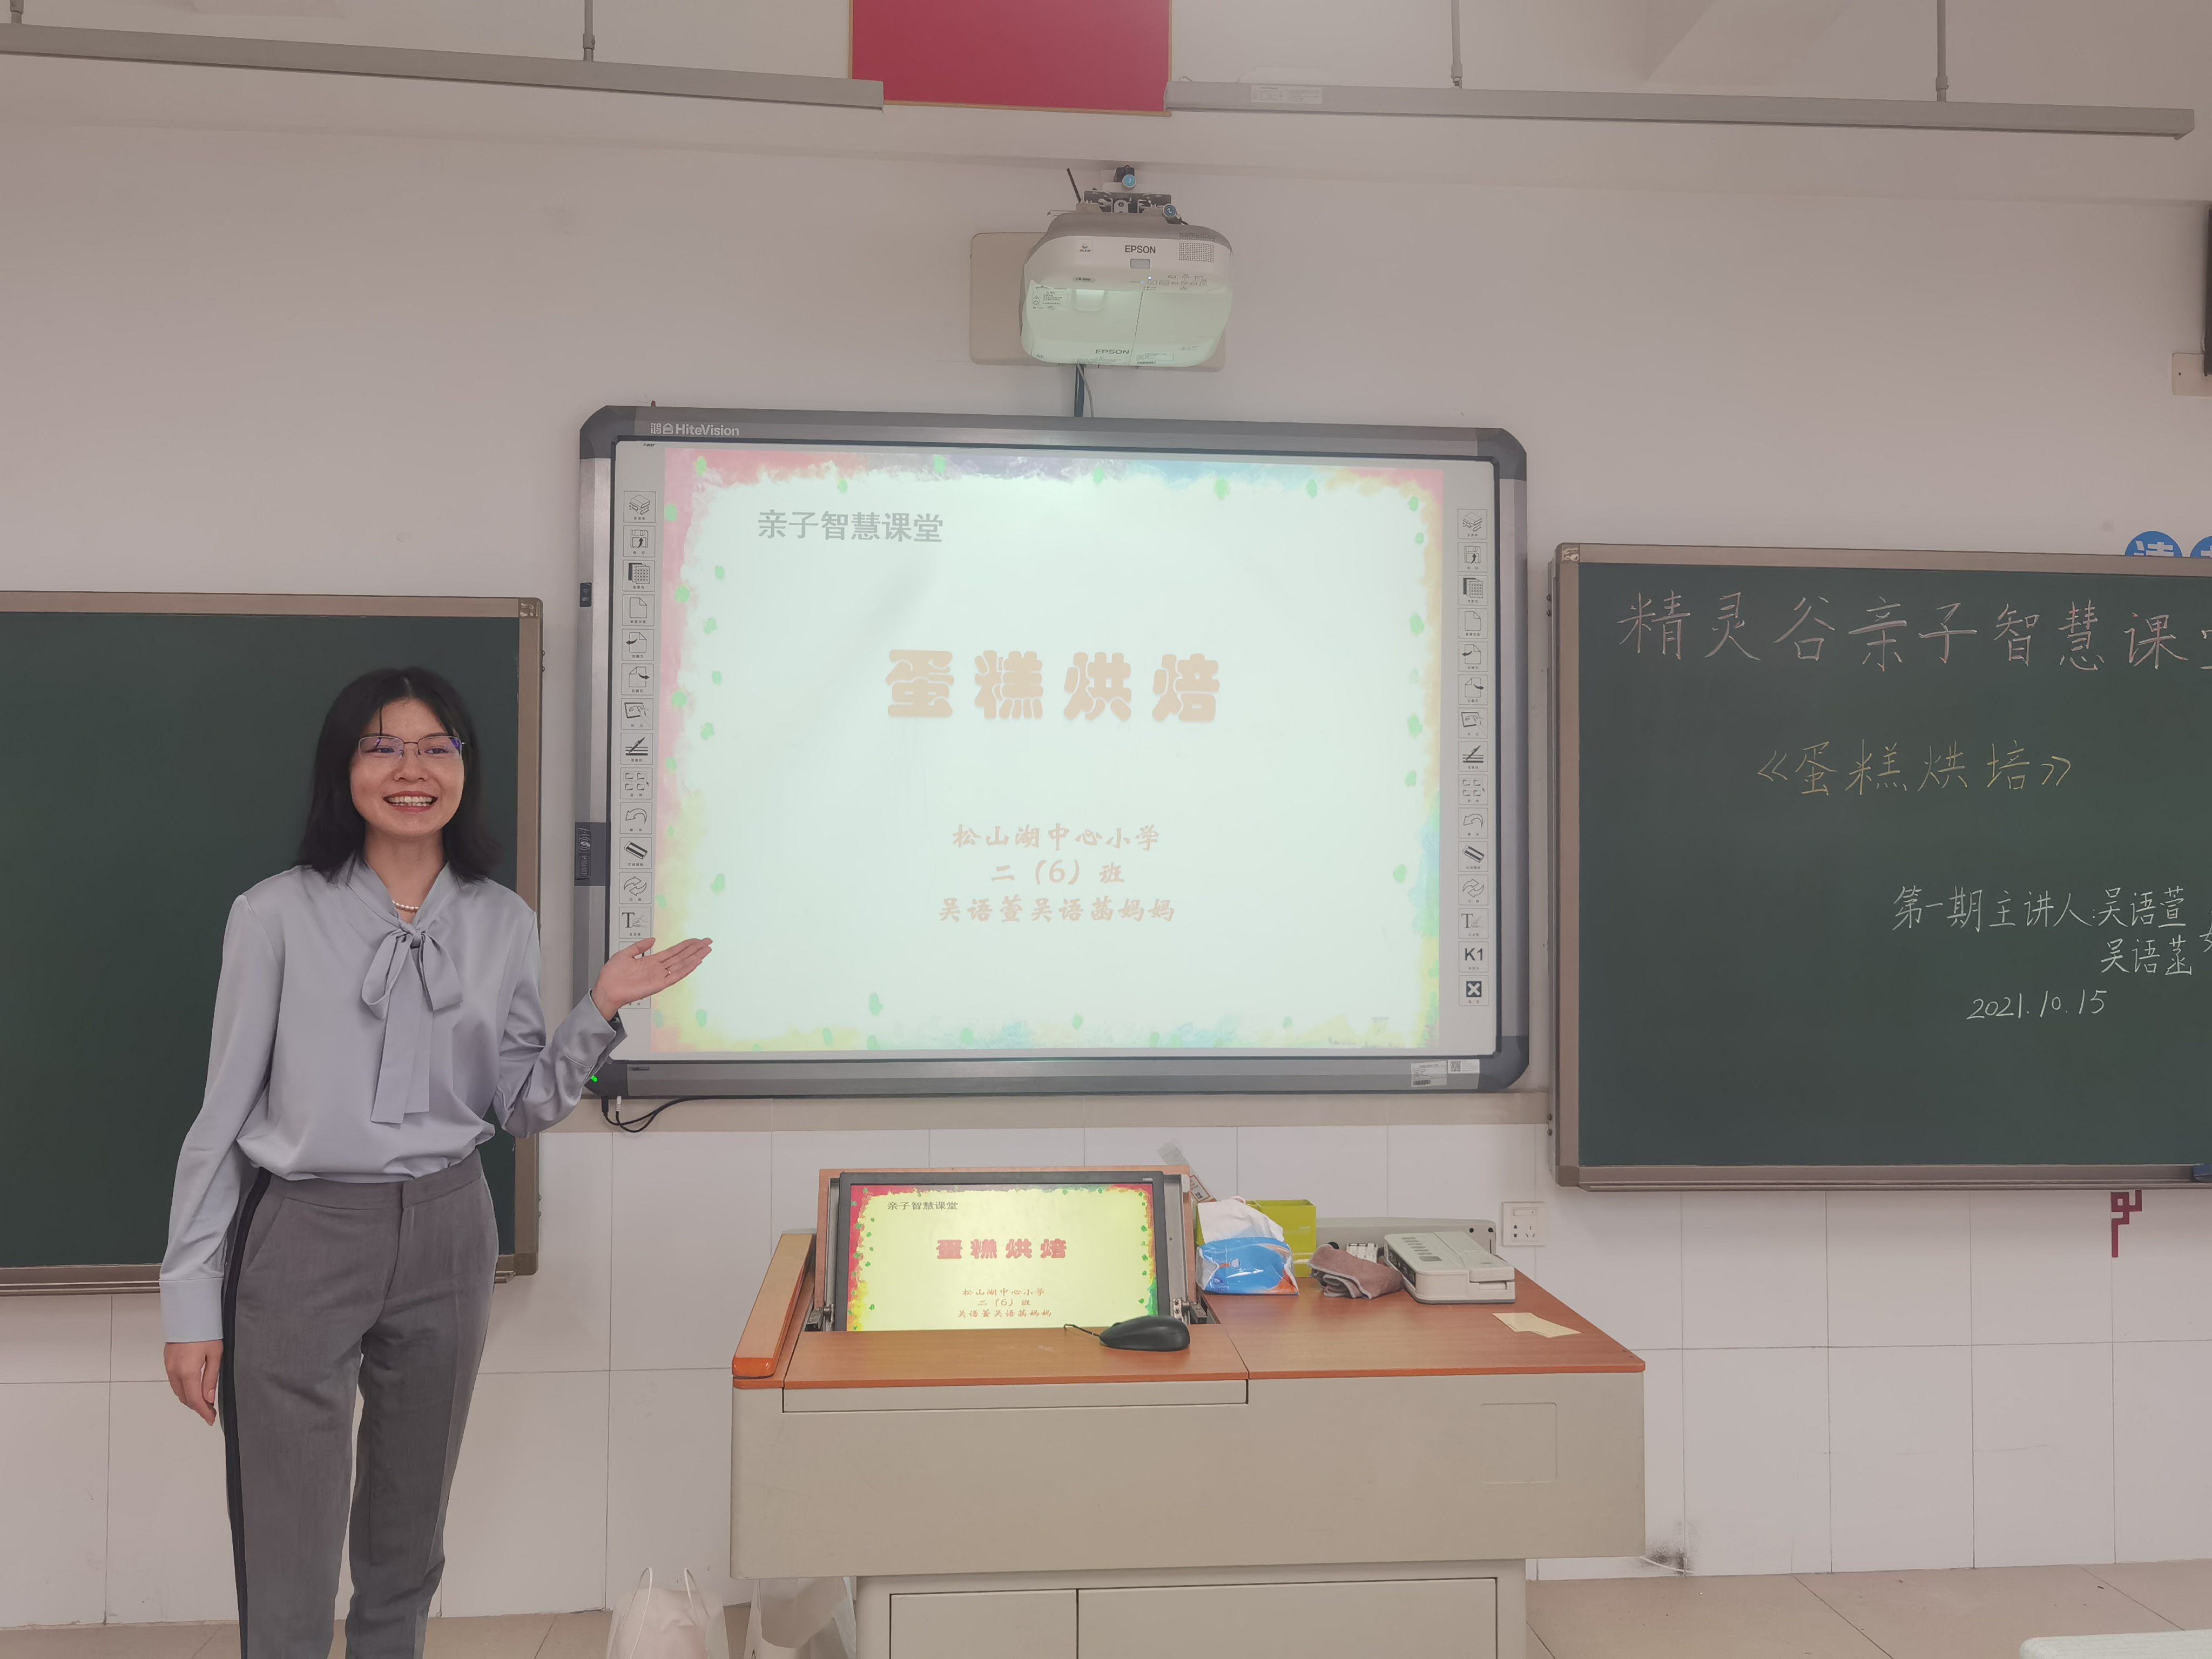 EPSON
EPSON
鸿合HiteVision
亲子智慧课堂
蛋糕烘焙
松山湖中心小学
二（6）班
吴语萱吴语菡妈妈
K1
精灵谷亲子智慧课
《蛋糕烘培》
第一期主讲人:吴语萱
吴语菡
2021.10.15
亲子智慧课堂
蛋糕烘焙
松山湖中心小学
二（6）班
吴语萱吴语菡妈妈